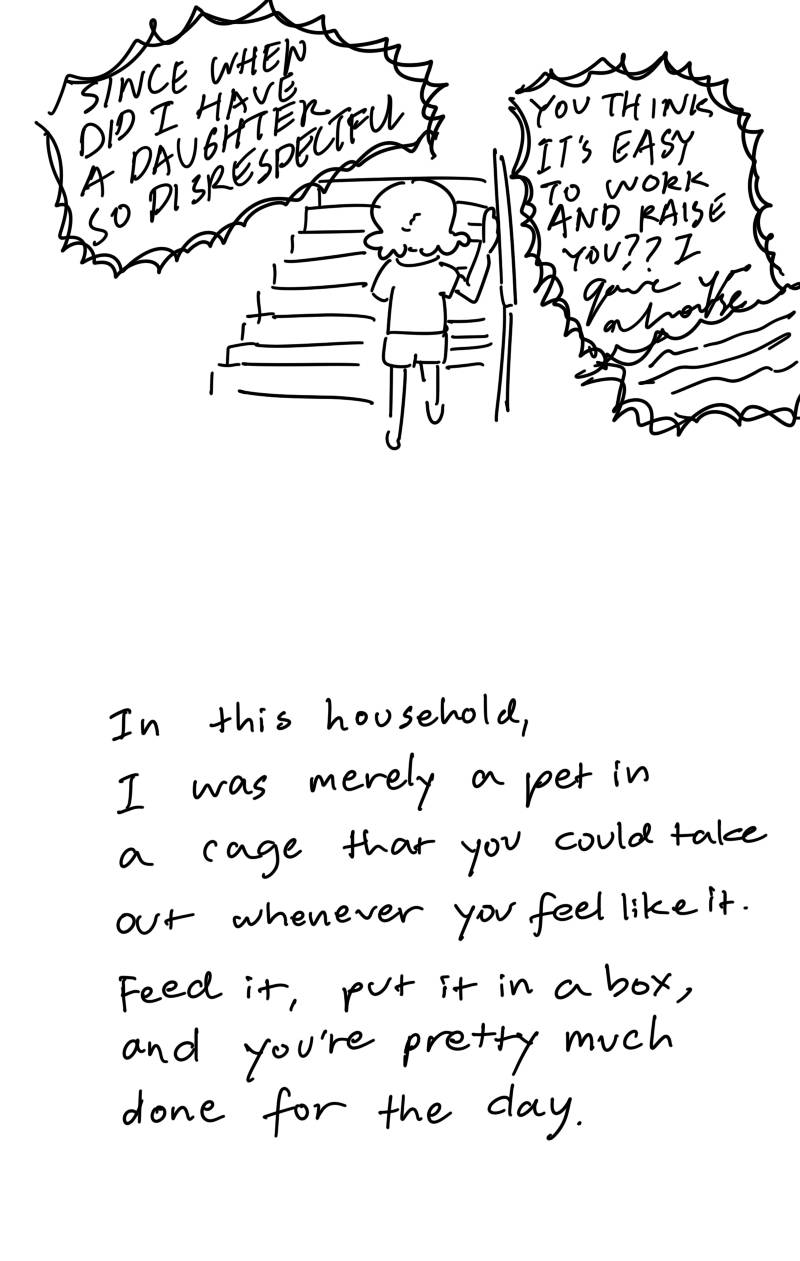 SINCE WHEN
DID I HAVE
A DAUGHTER
SO DISRESPECTFUL
YOU THINK
IT'S EASY
TO WORK
AND RAISE
YOU?? I
In this household,
I was merely a pet in
a cage that you could take
out whenever you feel like it.
Feed it, put it in a box,
and you're pretty much
done for the day.